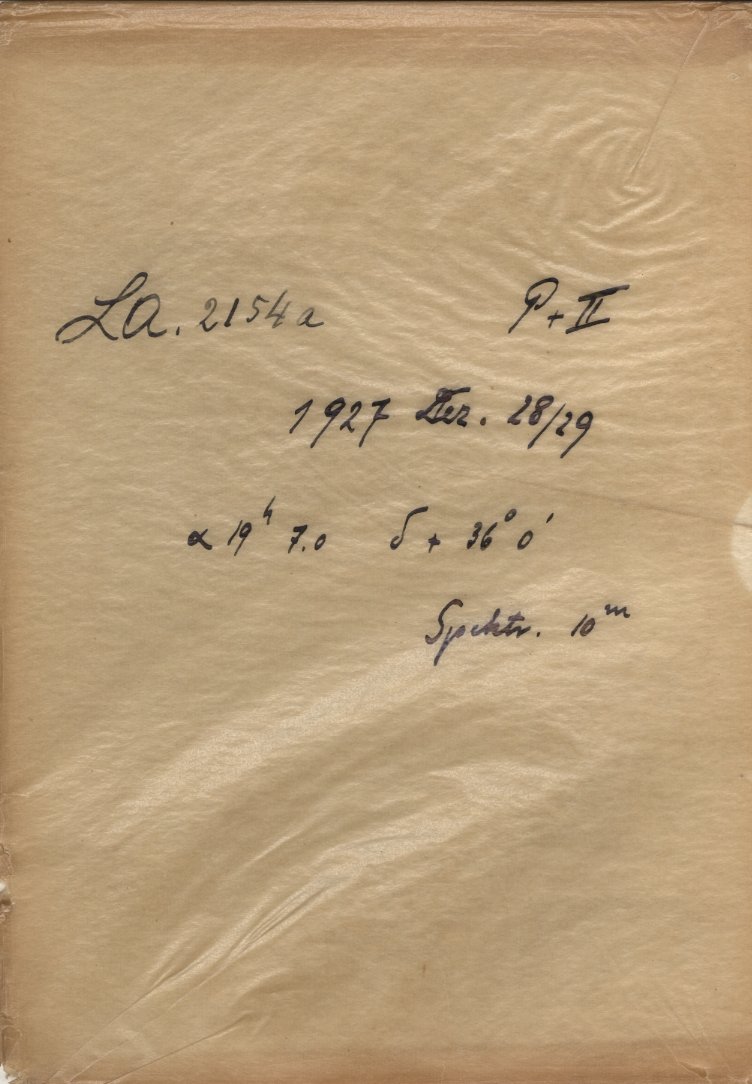 LA. 2154a P+II
1927 Dez. 28/29
α 19ʰ 7.0 δ + 36° 0'
Spektr. 10ᵐ